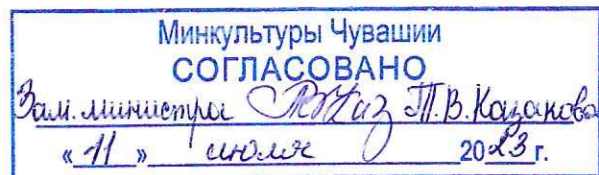 Минкультуры Чувашии
СОГЛАСОВАНО
Зам. министра Т.В. Казакова
«11» июля 2023 г.